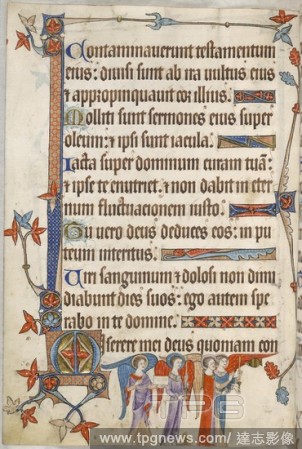 Contaminauerunt testamentum
eius: diuisi sunt ab ira uultus eius
⁊ appropinquauit cor illius.
Molliti sunt sermones eius super
oleum: ⁊ ipsi sunt iacula.
Iacta super dominum curam tuam:
⁊ ipse te enutriet. ⁊ non dabit in eter
num fluctuacionem iusto.
Tu uero deus deduces eos: in pu
teum interitus.
Uiri sanguinum ⁊ dolosi non dimi
diabunt dies suos: ego autem spe
rabo in te domine.
Miserere mei deus quoniam con
TPG
www.tpgnews.com/達志影像